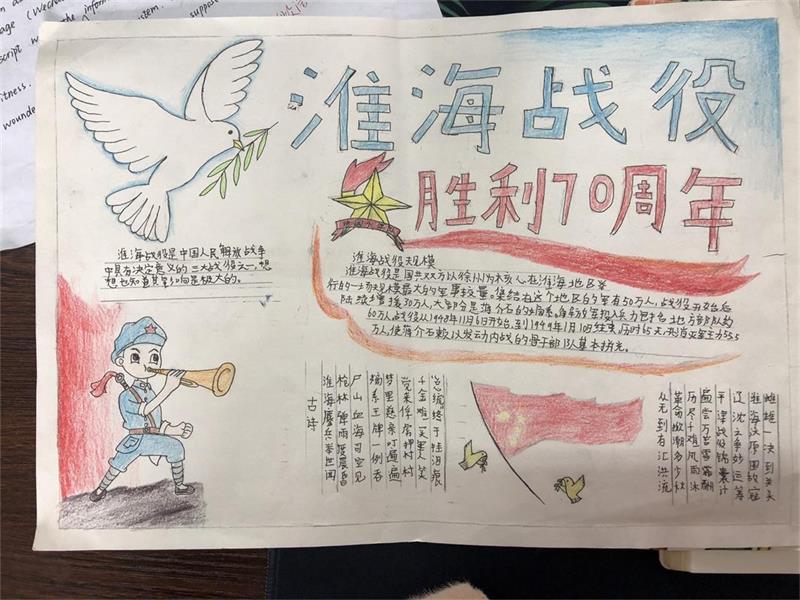 淮海战役
胜利70周年
淮海战役是中国人民解放战争
中具有决定意义的三大战役之一,想
想也知道其影响是极大的。
淮海战役规模
淮海战役是国共双方以徐州为核心,在淮海地区
行的一场规模最大的军事较量。集结在这个地区的军有50万人,战役开始后
陆续增援30万人,大部分是蒋介石的
60万人,战役从1948年11月6日开始,到1949年1月10日结束,历时65天,共消灭军主力55.5
万人,使蒋介石赖以发动内战的骨干部队基本
古诗
淮海鏖兵举世闻
枪林弹雨度晨昏
尸山血海司空见
嫡系王牌一例吞
梦里庭亲叮遍遍
觉来俘虏押村村
千金难买军人笑
总统终于挂泪痕
雌雄一决到关头
淮海
辽沈之季妙运筹
平津战役锦囊计
遍尝万苦雪霜酬
历尽千难风雨沐
革命激潮多少秋
从无到有汇洪流